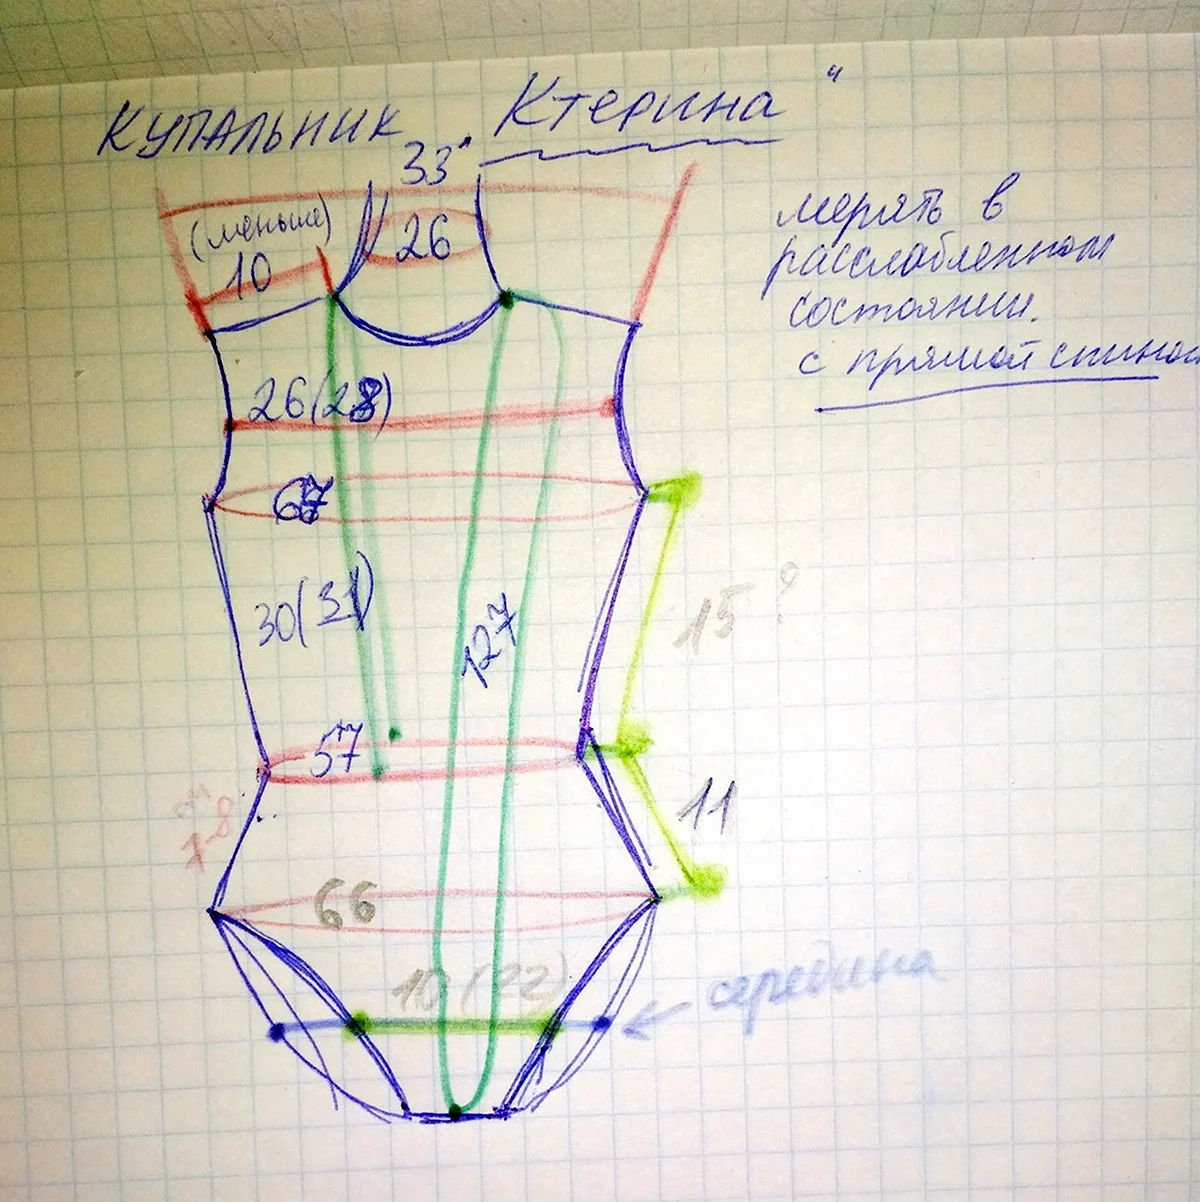 Купальник „Ктерина"
33
(меньше)
26
10
мерять в
расслабленном
состоянии.
с прямой спиной
26(28)
67
30(31)
127
15 ?
57
11
66
10(22)
середина